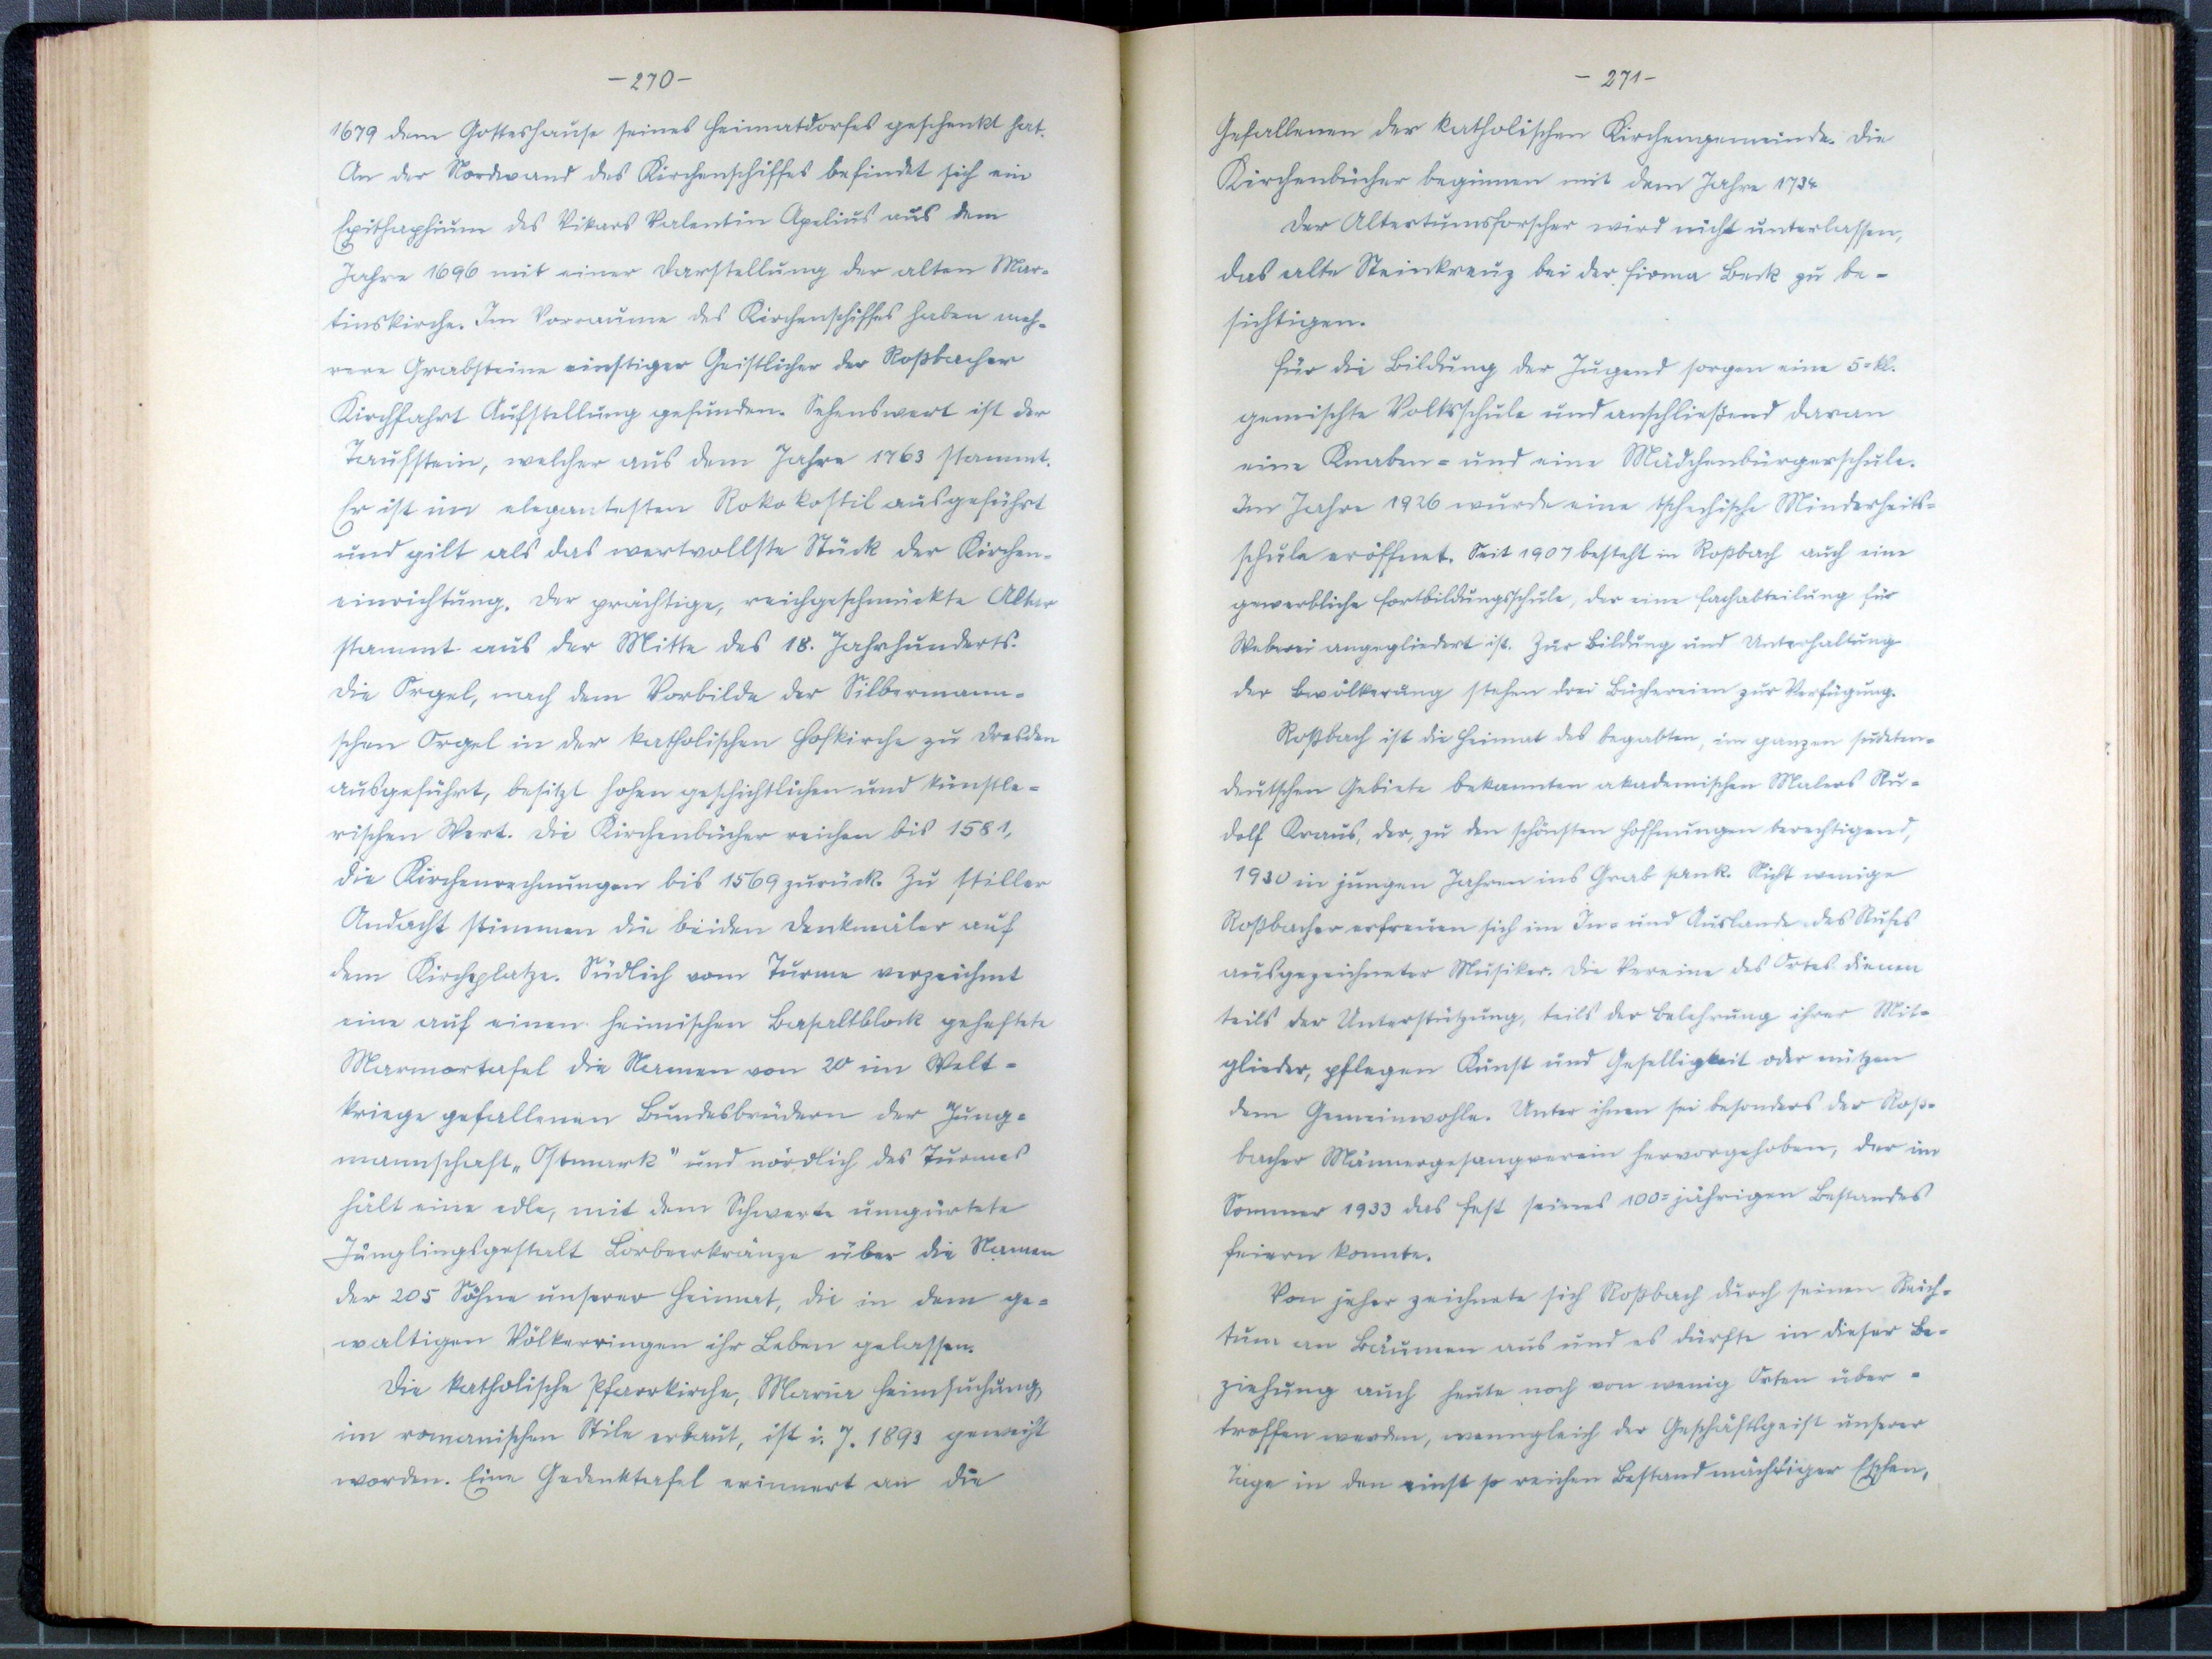 -270-
1679 dem Gotteshause seines Heimatdorfes geschenkt hat.
An der Nordwand des Kirchenschiffes befindet sich ein
Epithaphium des Vikars Valentin Apelius aus dem
Jahre 1696 mit einer Darstellung der alten Mar-
tinskirche. Im Vorraume des Kirchenschiffes haben meh-
rere Grabsteine einstiger Geistlicher der Roßbacher
Kirchfahrt Aufstellung gefunden. Sehenswert ist der
Taufstein, welcher aus dem Jahre 1763 stammt.
Er ist im elegantesten Rokokostil ausgeführt
und gilt als das wertvollste Stück der Kirchen-
einrichtung. Der prächtige, reichgeschmückte Altar
stammt aus der Mitte des 18. Jahrhunderts.
Die Orgel, nach dem Vorbilde der Silbermann-
schen Orgel in der katholischen Hofkirche zu Dresden
ausgeführt, besitzt hohen geschichtlichen und künstle-
rischen Wert. Die Kirchenbücher reichen bis 1581,
die Kirchenrechnungen bis 1569 zurück. Zu stiller
Andacht stimmen die beiden Denkmäler auf
dem Kirchplatze. Südlich vom Turme verzeichnet
eine auf einen heimischen Basaltblock geheftete
Marmortafel die Namen von 20 im Welt-
kriege gefallenen Bundesbrüdern der Jung-
mannschaft „Ostmark" und nördlich des Turmes
hält eine edle, mit dem Schwerte umgürtete
Jünglingsgestalt Lorbeerkränze über die Namen
der 205 Söhne unserer Heimat, die in dem ge-
waltigen Völkerringen ihr Leben gelassen.
Die katholische Pfarrkirche, Mariä Heimsuchung,
im romanischen Stile erbaut, ist i. J. 1893 geweiht
worden. Eine Gedenktafel erinnert an die
-271-
Gefallenen der katholischen Kirchengemeinde. Die
Kirchenbücher beginnen mit dem Jahre 1734
Der Altertumsforscher wird nicht unterlassen,
das alte Steinkreuz bei der Firma Beck zu be-
sichtigen.
Für die Bildung der Jugend sorgen eine 5-kl.
gemischte Volksschule und anschließend daran
eine Knaben- und eine Mädchenbürgerschule.
Im Jahre 1926 wurde eine tschechische Minderheits-
schule eröffnet. Seit 1907 besteht in Roßbach auch eine
gewerbliche Fortbildungsschule, der eine Fachabteilung für
Weberei angegliedert ist. Zur Bildung und Unterhaltung
der Bevölkerung stehen drei Büchereien zur Verfügung.
Roßbach ist die Heimat des begabten, im ganzen sudeten-
deutschen Gebiete bekannten akademischen Malers Ru-
dolf Kraus, der, zu den schönsten Hoffnungen berechtigend,
1930 in jungen Jahren ins Grab sank. Nicht wenige
Roßbacher erfreuen sich im In- und Auslande des Rufes
ausgezeichneter Musiker. Die Vereine des Ortes dienen
teils der Unterstützung, teils der Belehrung ihrer Mit-
glieder, pflegen Kunst und Geselligkeit oder nützen
dem Gemeinwohle. Unter ihnen sei besonders der Roß-
bacher Männergesangverein hervorgehoben, der im
Sommer 1933 das Fest seines 100-jährigen Bestandes
feiern konnte.
Von jeher zeichnete sich Roßbach durch seinen Reich-
tum an Bäumen aus und es dürfte in dieser Be-
ziehung auch heute noch von wenig Orten über-
troffen werden, wenngleich der Geschäftsgeist unserer
Tage in den einst so reichen Bestand mächtiger Eschen,